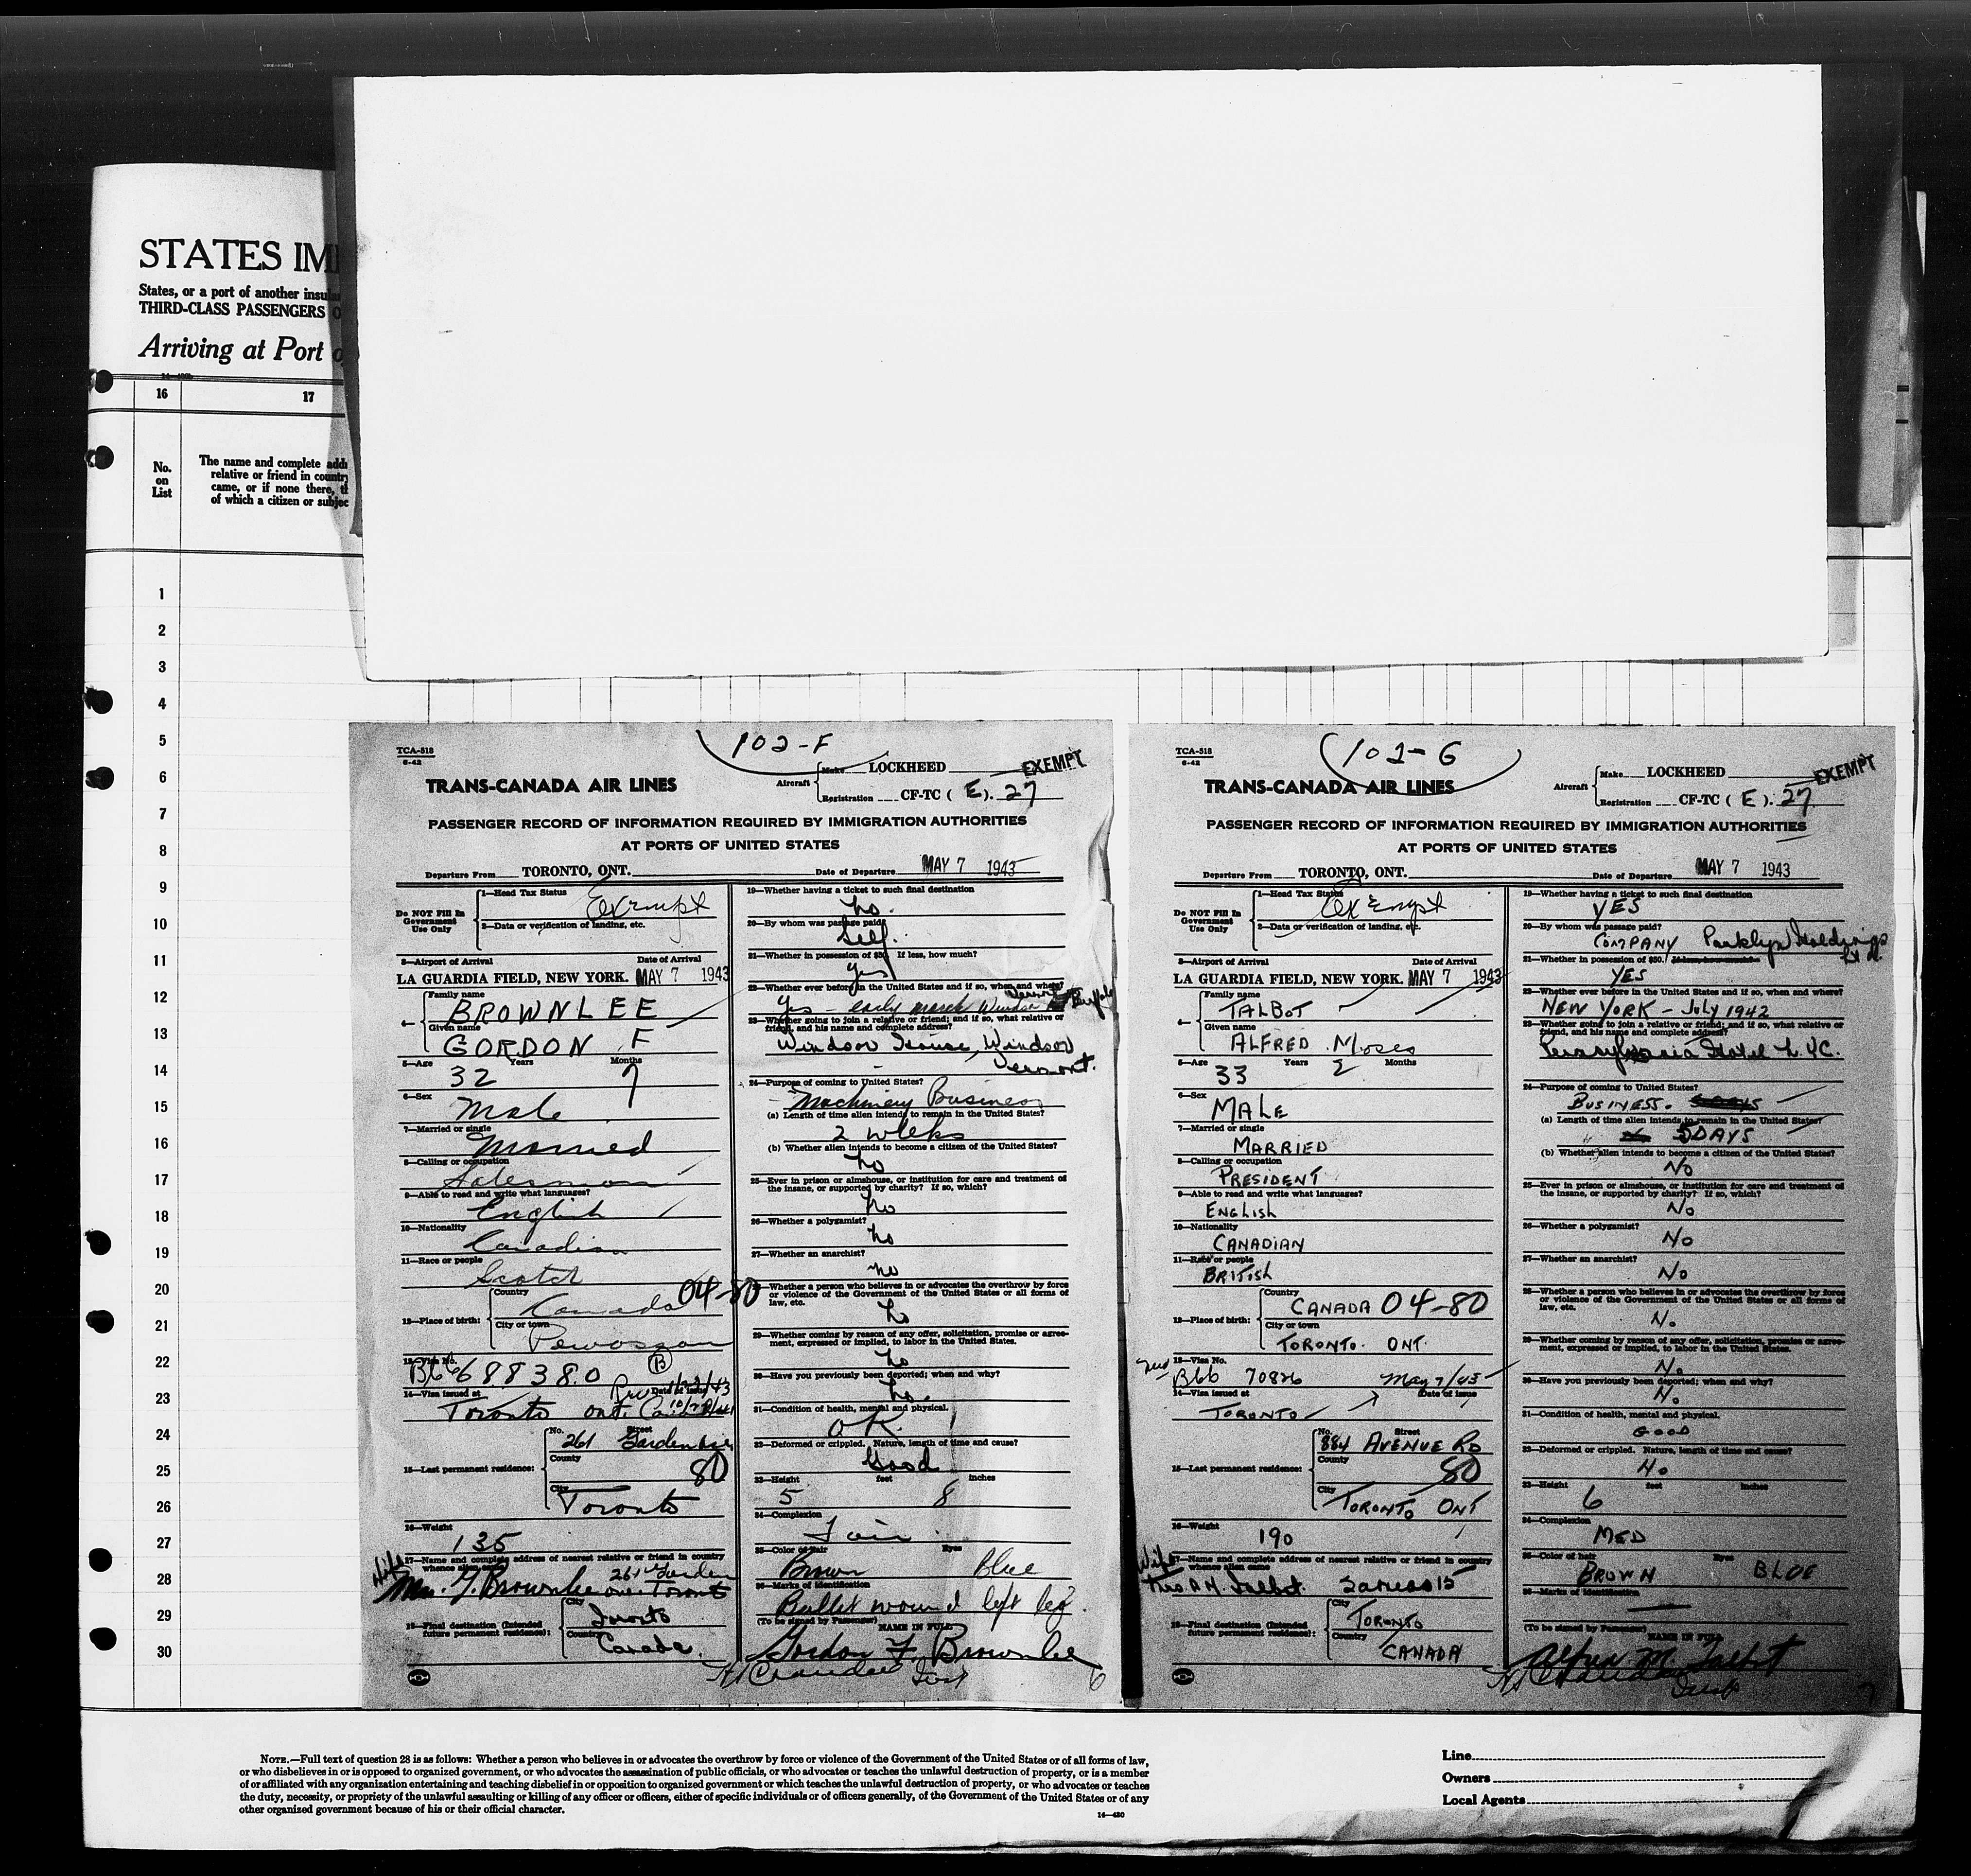 STATES IM
States, or a port of another insu
THIRD-CLASS PASSENGERS O
Arriving at Port o
16 17
No. on List
The name and complete add
relative or friend in country
came, or if none there, t
of which a citizen or subjec
1
2
3
4
5
6
7
8
9
10
11
12
13
14
15
16
17
18
19
20
21
22
23
24
25
26
27
28
29
30
TCA-518
6-42
102-F
TRANS-CANADA AIR LINES
Aircraft
Make LOCKHEED
EXEMPT
Registration CF-TC ( E ). 27
PASSENGER RECORD OF INFORMATION REQUIRED BY IMMIGRATION AUTHORITIES
AT PORTS OF UNITED STATES
Departure From TORONTO, ONT. Date of Departure MAY 7 1943
Do NOT Fill In Government Use Only
1—Head Tax Status
Exempt
2—Data or verification of landing, etc.
3—Airport of Arrival Date of Arrival
LA GUARDIA FIELD, NEW YORK. MAY 7 1943
4—
Family name
BROWNLEE
Given name
GORDON F
5—Age Years Months
32 7
6—Sex
Male
7—Married or single
Married
8—Calling or occupation
Salesman
9—Able to read and write what languages?
English
10—Nationality
Canadian
11—Race or people
Scotch
12—Place of birth:
Country
Canada 04-80
City or town
13—Visa No.
B66688380 B
14—Visa issued at Date of issue
Toronto Ont.
15—Last permanent residence:
No. Street
261 Garden Ave
County
80
City
Toronto
16—Weight
135
17—Name and complete address of nearest relative or friend in country
whence alien came
Wife
Mrs. G. Brownlee 261 Garden
ave. Toronto
18—Final destination (Intended
future permanent residence):
City
Toronto
Country
Canada.
19—Whether having a ticket to such final destination
no.
20—By whom was passage paid?
Self.
21—Whether in possession of $50. If less, how much?
yes
22—Whether ever before in the United States and if so, when and where?
yes - early march Windsor Vermont Buffalo
23—Whether going to join a relative or friend; and if so, what relative or
friend, and his name and complete address?
Windsor House, Windsor
Vermont.
24—Purpose of coming to United States?
Machinery Business
(a) Length of time alien intends to remain in the United States?
2 weeks
(b) Whether alien intends to become a citizen of the United States?
no
25—Ever in prison or almshouse, or institution for care and treatment of
the insane, or supported by charity? If so, which?
no
26—Whether a polygamist?
no
27—Whether an anarchist?
no
28—Whether a person who believes in or advocates the overthrow by force
or violence of the Government of the United States or all forms of
law, etc.
no
29—Whether coming by reason of any offer, solicitation, promise or agree-
ment, expressed or implied, to labor in the United States.
no
30—Have you previously been deported; when and why?
no.
31—Condition of health, mental and physical.
OK.
32—Deformed or crippled. Nature, length of time and cause?
Good
33—Height feet inches
5 8
34—Complexion
Fair
35—Color of hair Eyes
Brown Blue
36—Marks of identification
Bullet wound left leg.
(To be signed by Passenger) NAME IN FULL
Gordon F. Brownlee
6
TCA-518
6-42
102-G
TRANS-CANADA AIR LINES
Aircraft
Make LOCKHEED
EXEMPT
Registration CF-TC ( E ). 27
PASSENGER RECORD OF INFORMATION REQUIRED BY IMMIGRATION AUTHORITIES
AT PORTS OF UNITED STATES
Departure From TORONTO, ONT. Date of Departure MAY 7 1943
Do NOT Fill In Government Use Only
1—Head Tax Status
Exempt
2—Data or verification of landing, etc.
3—Airport of Arrival Date of Arrival
LA GUARDIA FIELD, NEW YORK. MAY 7 1943
4—
Family name
TALBOT
Given name
ALFRED Moses
5—Age Years Months
33 2
6—Sex
MALE
7—Married or single
MARRIED
8—Calling or occupation
PRESIDENT
9—Able to read and write what languages?
ENGLISH
10—Nationality
CANADIAN
11—Race or people
BRITISH
12—Place of birth:
Country
CANADA 04-80
City or town
TORONTO. ONT.
13—Visa No.
B66 70826 May 7/43
14—Visa issued at Date of issue
TORONTO
15—Last permanent residence:
No. Street
884 AVENUE RD
County
80
City
TORONTO ONT
16—Weight
190
17—Name and complete address of nearest relative or friend in country
whence alien came
Wife
Mrs A.M. Talbot. Same as 15
18—Final destination (Intended
future permanent residence):
City
TORONTO
Country
CANADA
19—Whether having a ticket to such final destination
YES
20—By whom was passage paid?
COMPANY Parklyn Holdings Ltd.
21—Whether in possession of $50. If less, how much?
YES
22—Whether ever before in the United States and if so, when and where?
NEW YORK - JULY 1942
23—Whether going to join a relative or friend; and if so, what relative or
friend, and his name and complete address?
Pennsylvania Hotel N.Y.C.
24—Purpose of coming to United States?
BUSINESS.
(a) Length of time alien intends to remain in the United States?
5 DAYS
(b) Whether alien intends to become a citizen of the United States?
NO
25—Ever in prison or almshouse, or institution for care and treatment of
the insane, or supported by charity? If so, which?
NO
26—Whether a polygamist?
NO
27—Whether an anarchist?
NO
28—Whether a person who believes in or advocates the overthrow by force
or violence of the Government of the United States or all forms of
law, etc.
NO.
29—Whether coming by reason of any offer, solicitation, promise or agree-
ment, expressed or implied, to labor in the United States.
NO.
30—Have you previously been deported; when and why?
NO.
31—Condition of health, mental and physical.
GOOD
32—Deformed or crippled. Nature, length of time and cause?
NO
33—Height feet inches
6
34—Complexion
MED
35—Color of hair Eyes
BROWN BLUE
36—Marks of identification
(To be signed by Passenger) NAME IN FULL
Alfred M. Talbot
7
NOTE.—Full text of question 28 is as follows: Whether a person who believes in or advocates the overthrow by force or violence of the Government of the United States or of all forms of law,
or who disbelieves in or is opposed to organized government, or who advocates the assassination of public officials, or who advocates or teaches the unlawful destruction of property, or is a member
of or affiliated with any organization entertaining and teaching disbelief in or opposition to organized government or which teaches the unlawful destruction of property, or who advocates or teaches
the duty, necessity, or propriety of the unlawful assaulting or killing of any officer or officers, either of specific individuals or of officers generally, of the Government of the United States or of any
other organized government because of his or their official character.
14—430
Line
Owners
Local Agents